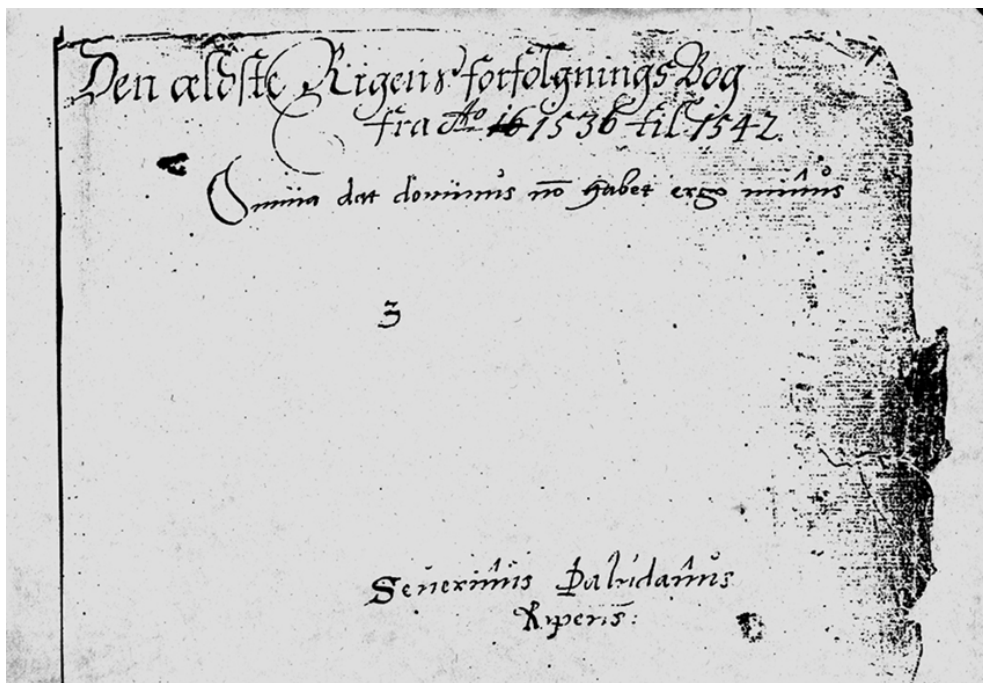 Den ældste Rigens forfolgnings Bog
fra Aº 16 1536 til 1542.
Omnia dat dominus nō habet ergo minus
3
Seuerinus Paludanus
Ripens̄: